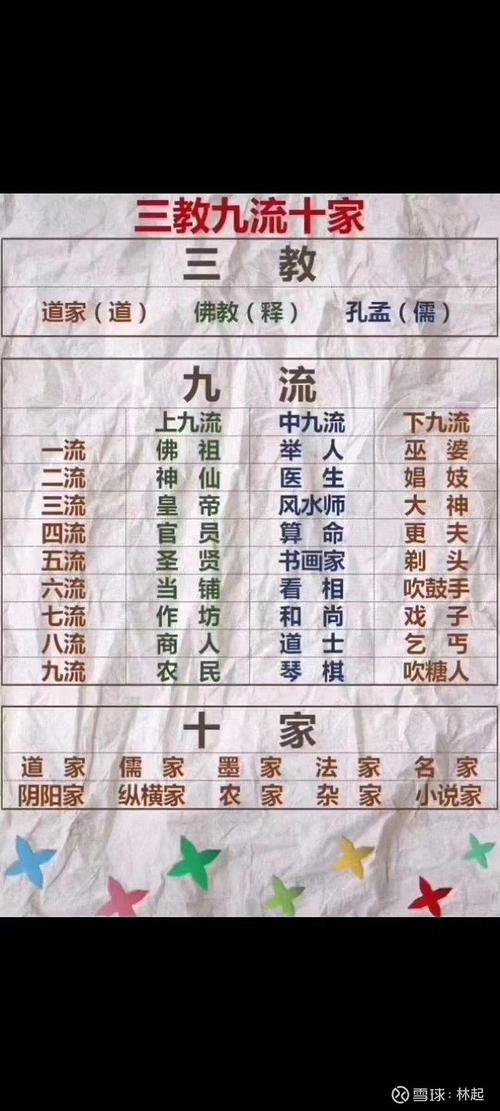 三教九流十家
三 教
道家（道） 佛教（释） 孔孟（儒）
九 流
上九流 中九流 下九流
一流 佛 祖 举 人 巫 婆
二流 神 仙 医 生 娼 妓
三流 皇 帝 风水师 大 神
四流 官 员 算 命 更 夫
五流 圣 贤 书画家 剃 头
六流 当 铺 看 相 吹鼓手
七流 作 坊 和 尚 戏 子
八流 商 人 道 士 乞 丐
九流 农 民 琴 棋 吹糖人
十 家
道 家 儒 家 墨 家 法 家 名 家
阴阳家 纵横家 农 家 杂 家 小说家
雪球：林起